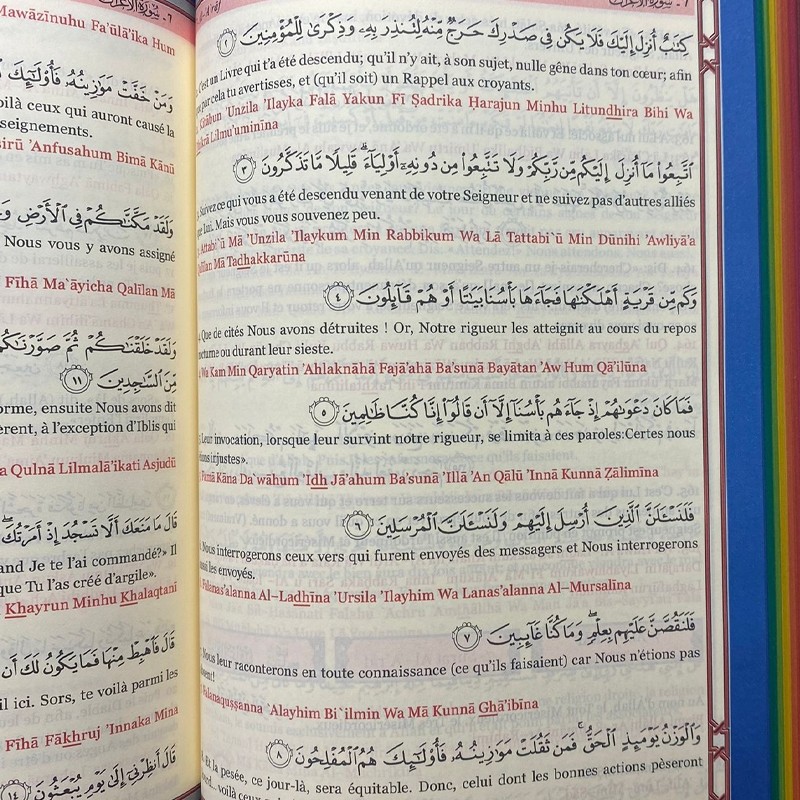 ٧ - سُورَةُ الأَعْرَاف
Mawāzīnuhu Fa'ūlā'ika Hum
وَمَنْ خَفَّتْ مَوَازِينُهُۥ فَأُو۟لَٰٓئِكَ
oilà ceux qui auront causé la
seignements.
'Anfusahum Bimā Kānū
وَلَقَدْ مَكَّنَّٰكُمْ فِى ٱلْأَرْضِ
Nous vous y avons assigné
Fīhā Ma`āyicha Qalīlan Mā
وَلَقَدْ خَلَقْنَٰكُمْ ثُمَّ صَوَّرْنَٰكُمْ
مِّنَ ٱلسَّٰجِدِينَ ١١
orme, ensuite Nous avons dit
èrent, à l'exception d'Iblis qui
a Qulnā Lilmalā'ikati Asjudū
قَالَ مَا مَنَعَكَ أَلَّا تَسْجُدَ إِذْ أَمَرْتُكَ
and Je te l'ai commandé?» Il
que Tu l'as créé d'argile».
Khayrun Minhu Khalaqtanī
قَالَ فَٱهْبِطْ مِنْهَا فَمَا يَكُونُ لَكَ أَن
il ici. Sors, te voilà parmi les
Fīhā Fākhruj 'Innaka Mina
قَالَ أَنظِرْنِىٓ إِلَىٰ يَوْمِ يُبْعَثُونَ ١٤
كِتَٰبٌ أُنزِلَ إِلَيْكَ فَلَا يَكُن فِى صَدْرِكَ حَرَجٌ مِّنْهُ لِتُنذِرَ بِهِۦ وَذِكْرَىٰ لِلْمُؤْمِنِينَ ٢
C'est un Livre qui t'a été descendu; qu'il n'y ait, à son sujet, nulle gêne dans ton cœur; afin
par cela tu avertisses, et (qu'il soit) un Rappel aux croyants.
'Unzila 'Ilayka Falā Yakun Fī Şadrika Ḥarajun Minhu Litundhira Bihi Wa
Lilmu'uminīna
ٱتَّبِعُوا۟ مَآ أُنزِلَ إِلَيْكُم مِّن رَّبِّكُمْ وَلَا تَتَّبِعُوا۟ مِن دُونِهِۦٓ أَوْلِيَآءَ ۗ قَلِيلًا مَّا تَذَكَّرُونَ ٣
Suivez ce qui vous a été descendu venant de votre Seigneur et ne suivez pas d'autres alliés
que Lui. Mais vous vous souvenez peu.
Attabi`ū Mā 'Unzila 'Ilaykum Min Rabbikum Wa Lā Tattabi`ū Min Dūnihi 'Awliyā'a
Mā Tadhakkarūna
وَكَم مِّن قَرْيَةٍ أَهْلَكْنَٰهَا فَجَآءَهَا بَأْسُنَا بَيَٰتًا أَوْ هُمْ قَآئِلُونَ ٤
Que de cités Nous avons détruites ! Or, Notre rigueur les atteignit au cours du repos
nocturne ou durant leur sieste.
Wa Kam Min Qaryatin 'Ahlaknāhā Fajā'ahā Ba'sunā Bayātan 'Aw Hum Qā'ilūna
فَمَا كَانَ دَعْوَىٰهُمْ إِذْ جَآءَهُم بَأْسُنَآ إِلَّآ أَن قَالُوٓا۟ إِنَّا كُنَّا ظَٰلِمِينَ ٥
Leur invocation, lorsque leur survint notre rigueur, se limita à ces paroles:Certes nous
injustes».
Famā Kāna Da`wāhum 'Idh Jā'ahum Ba'sunā 'Illā 'An Qālū 'Innā Kunnā Žālimīna
فَلَنَسْـَٔلَنَّ ٱلَّذِينَ أُرْسِلَ إِلَيْهِمْ وَلَنَسْـَٔلَنَّ ٱلْمُرْسَلِينَ ٦
Nous interrogerons ceux vers qui furent envoyés des messagers et Nous interrogerons
les envoyés.
Falanas'alanna Al–Ladhīna 'Ursila 'Ilayhim Wa Lanas'alanna Al–Mursalīna
فَلَنَقُصَّنَّ عَلَيْهِم بِعِلْمٍ ۖ وَمَا كُنَّا غَآئِبِينَ ٧
Nous leur raconterons en toute connaissance (ce qu'ils faisaient) car Nous n'étions pas
Falanaquşşanna `Alayhim Bi`ilmin Wa Mā Kunnā Ghā'ibīna
وَٱلْوَزْنُ يَوْمَئِذٍ ٱلْحَقُّ ۚ فَمَن ثَقُلَتْ مَوَٰزِينُهُۥ فَأُو۟لَٰٓئِكَ هُمُ ٱلْمُفْلِحُونَ ٨
Et la pesée, ce jour-là, sera équitable. Donc, celui dont les bonnes actions pèseront